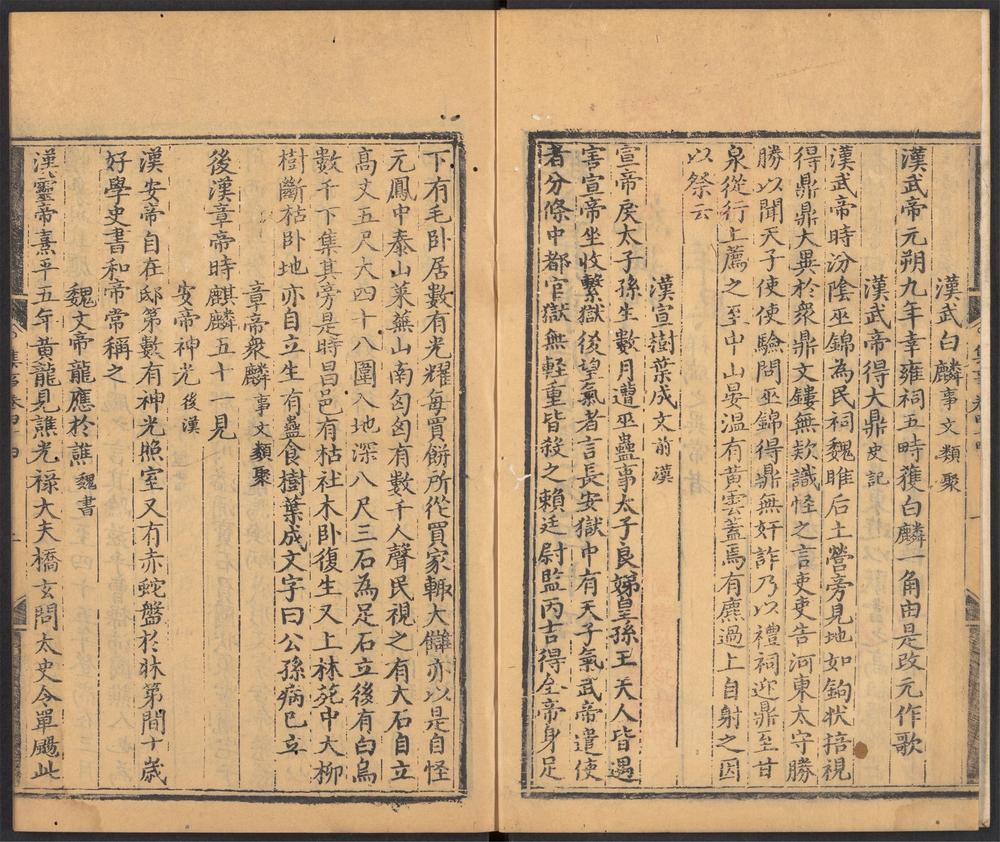 漢武白麟事文類聚
漢武帝元朔九年幸雍祠五畤獲白麟一角由是改元作歌
漢武帝得大鼎史記
漢武帝時汾陰巫錦為民祠魏睢后土營旁見地如鉤状掊視
得鼎鼎大異於衆鼎文鏤無欵識怪之言吏吏告河東太守勝
勝以聞天子使使驗問巫錦得鼎無奸詐乃以禮祠迎鼎至甘
泉從行上薦之至中山晏温有黃雲蓋焉有麃過上自射之因
以祭云
漢宣樹葉成文前漢
宣帝戾太子孫生數月遭巫蠱事太子良娣皇孫王夫人皆遇
害宣帝坐收繫獄後望氣者言長安獄中有天子氣武帝遣使
者分條中都官獄無輕重皆殺之賴廷尉監丙吉得全帝身足
下有毛卧居數有光耀每買餅所從買家輙大讎亦以是自怪
元鳳中泰山萊蕪山南匈匈有數千人聲民視之有大石自立
高丈五尺大四十八圍入地深八尺三石為足石立後有白烏
數千下集其旁是時昌邑有枯社木卧復生又上林苑中大柳
樹斷枯卧地亦自立生有蠱食樹葉成文字曰公孫病已立
章帝衆麟事文類聚
後漢章帝時麒麟五十一見
安帝神光後漢
漢安帝自在邸第數有神光照室又有赤蛇盤於牀第間十歲
好學史書和帝常稱之
魏文帝龍應於譙魏書
漢靈帝熹平五年黃龍見譙光禄大夫橋玄問太史令單颺此